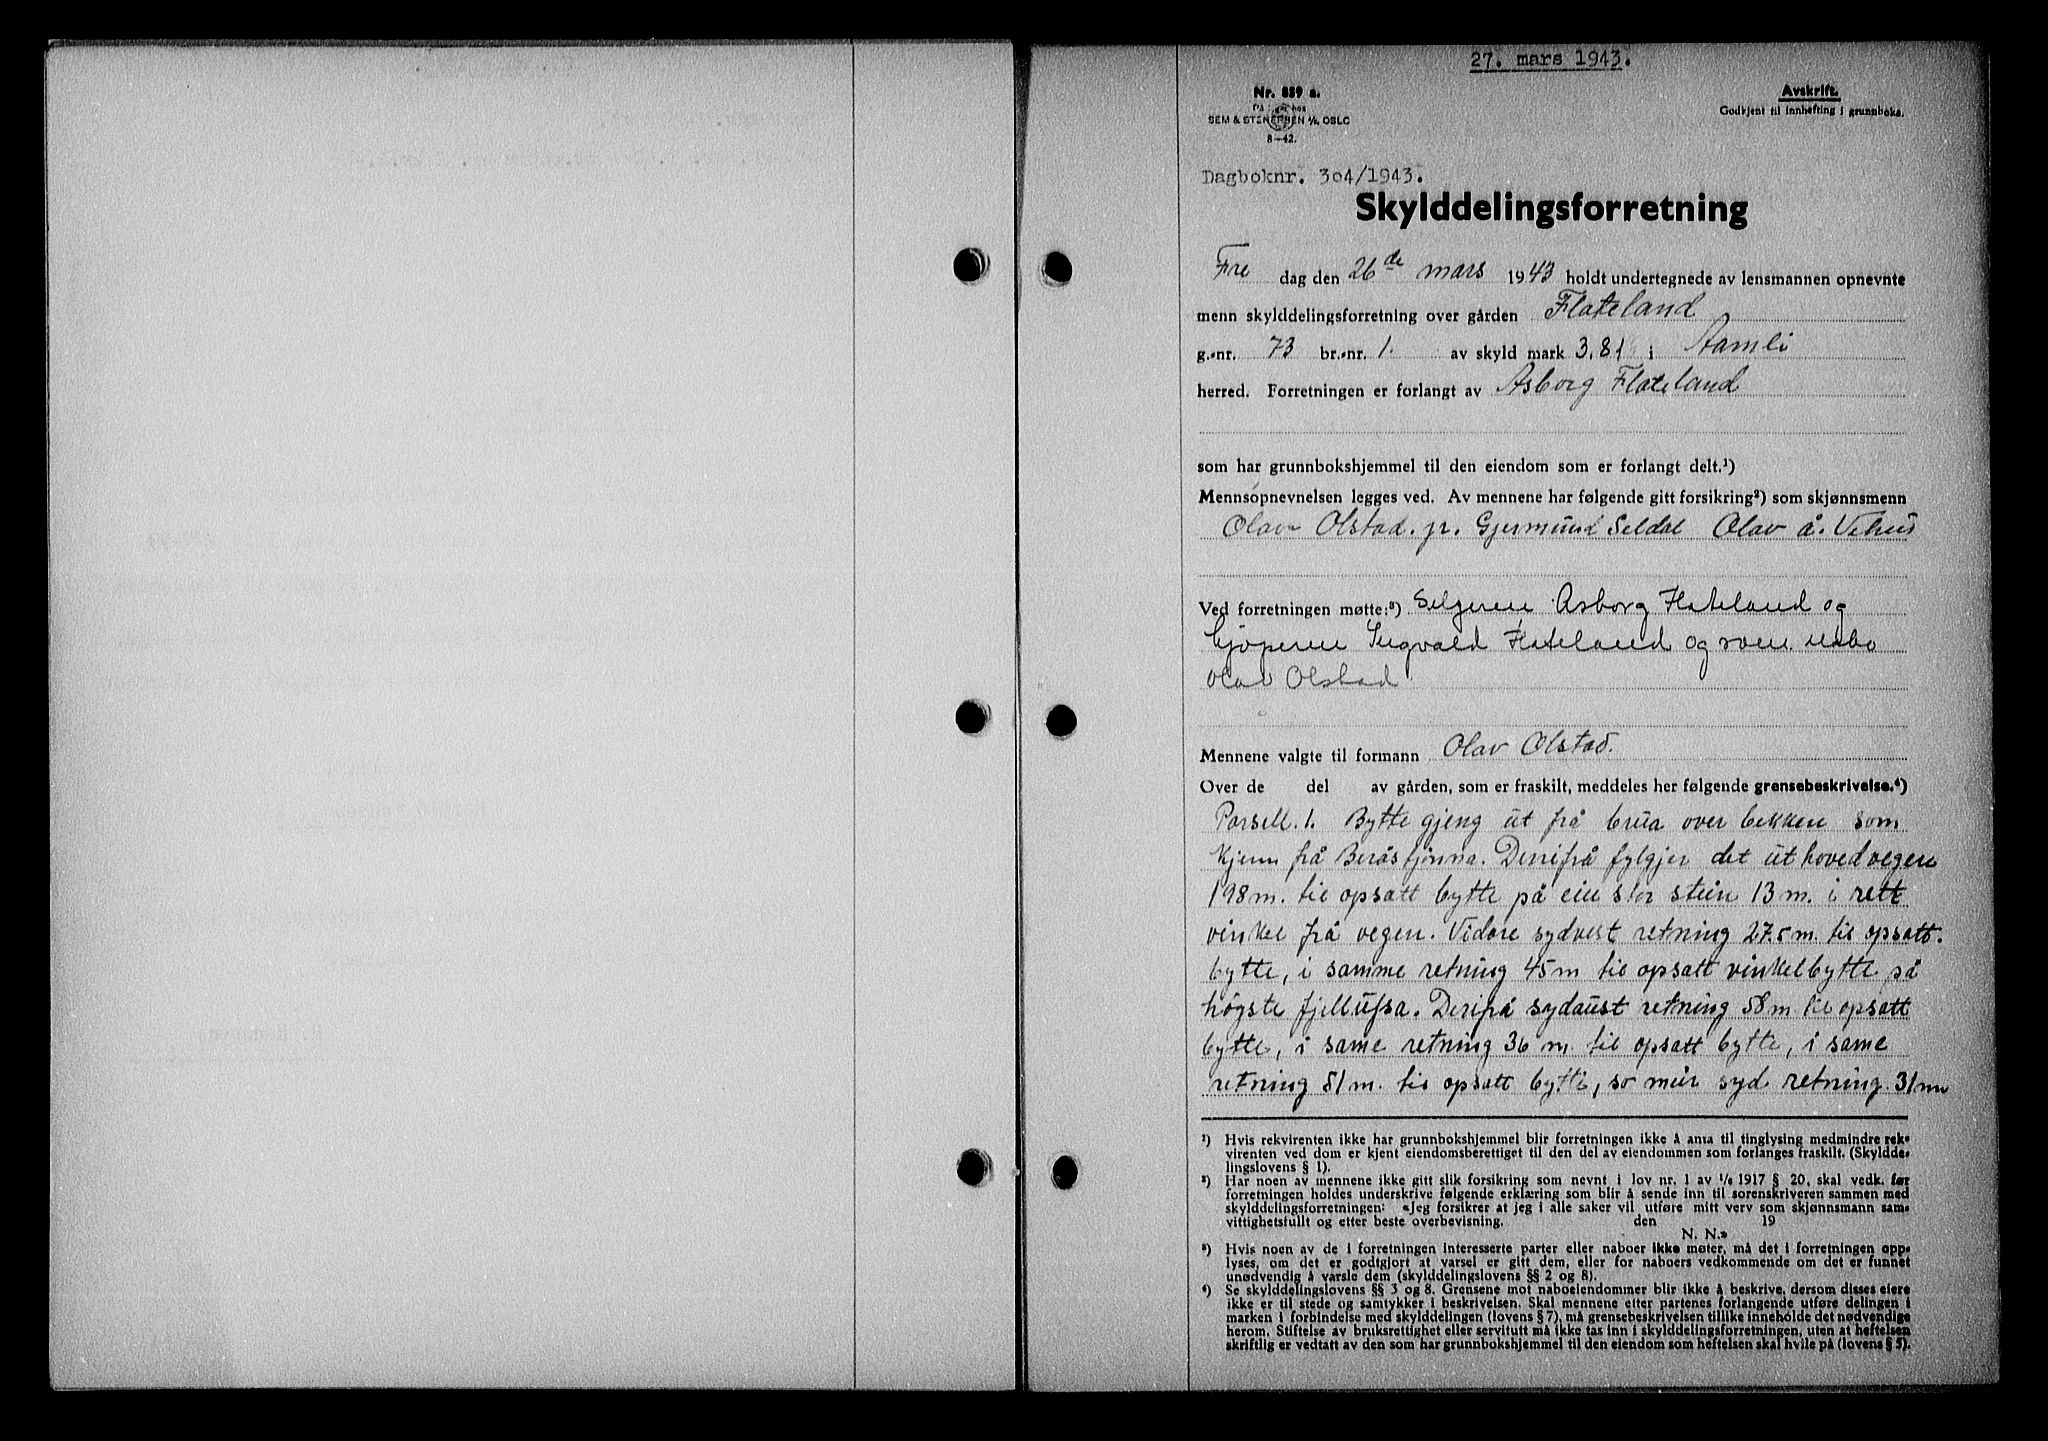 27. mars 1943.
Nr. 859 a.
SEM & STENERSEN A/S, OSLO
8-42.
Avskrift.
Godkjent til innhefting i grunnboka.
Dagboknr. 304/1943.
Skylddelingsforretning
Fre dag den 26de mars 1943 holdt undertegnede av lensmannen opnevnte
menn skylddelingsforretning over gården Flateland
g.-nr. 73 br.-nr. 1. av skyld mark 3.81 i Aamli
herred. Forretningen er forlangt av Asborg Flateland
som har grunnbokshjemmel til den eiendom som er forlangt delt.¹)
Mennsopnevnelsen legges ved. Av mennene har følgende gitt forsikring²) som skjønnsmenn
Olav Olstad. jr. Gjermund Seldal Olav å. Vehus
Ved forretningen møtte:³) Seljeren Asborg Flateland og
kjøperen Ingvald Flateland og som nabo
Olav Olstad
Mennene valgte til formann Olav Olstad.
Over de del av gården, som er fraskilt, meddeles her følgende grensebeskrivelse.⁴)
Parsell. 1. Bytte gjeng ut frå brua over bekken som
kjem frå Beråstjønna. Derifrå fylgjer det ut hovedvegen
198 m. til opsatt bytte på ein stor stein 13 m. i rett
vinkel frå vegen. Vidare sydvest retning 27.5 m. til opsatt.
bytte, i samme retning 45 m til opsatt vinkelbytte på
høgste fjellufsa. Derifrå sydaust retning 58 m til opsatt
bytte, i same retning 36 m til opsatt bytte, i same
retning 51 m. til opsatt bytte, so meir syd retning 31 m
¹) Hvis rekvirenten ikke har grunnbokshjemmel blir forretningen ikke å anta til tinglysing medmindre rek-
virenten ved dom er kjent eiendomsberettiget til den del av eiendommen som forlanges fraskilt. (Skyldde-
lingslovens § 1).
²) Har noen av mennene ikke gitt slik forsikring som nevnt i lov nr. 1 av 1/6 1917 § 20, skal vedk. før
forretningen holdes underskrive følgende erklæring som blir å sende inn til sorenskriveren sammen med
skylddelingsforretningen: «Jeg forsikrer at jeg i alle saker vil utføre mitt verv som skjønnsmann sam-
vittighetsfullt og etter beste overbevisning. den 19
N. N.»
³) Hvis noen av de i forretningen interesserte parter eller naboer ikke møter, må det i forretningen opp-
lyses, om det er godtgjort at varsel er gitt dem, eller for naboers vedkommende om det er funnet
unødvendig å varsle dem (skylddelingslovens §§ 2 og 8).
⁴) Se skylddelingslovens §§ 3 og 8. Grensene mot naboeiendommer blir ikke å beskrive, dersom disses eiere
ikke er til stede og samtykker i beskrivelsen. Skal mennene etter partenes forlangende utføre delingen i
marken i forbindelse med skylddelingen (lovens § 7), må grensebeskrivelsen tillike inneholde det nødvendige
herom. Stiftelse av bruksrettighet eller servitutt må ikke tas inn i skylddelingsforretningen, uten at heftelsen
skriftlig er vedtatt av den som har grunnbokshjemmel til den eiendom som heftelsen skal hvile på (lovens § 5).